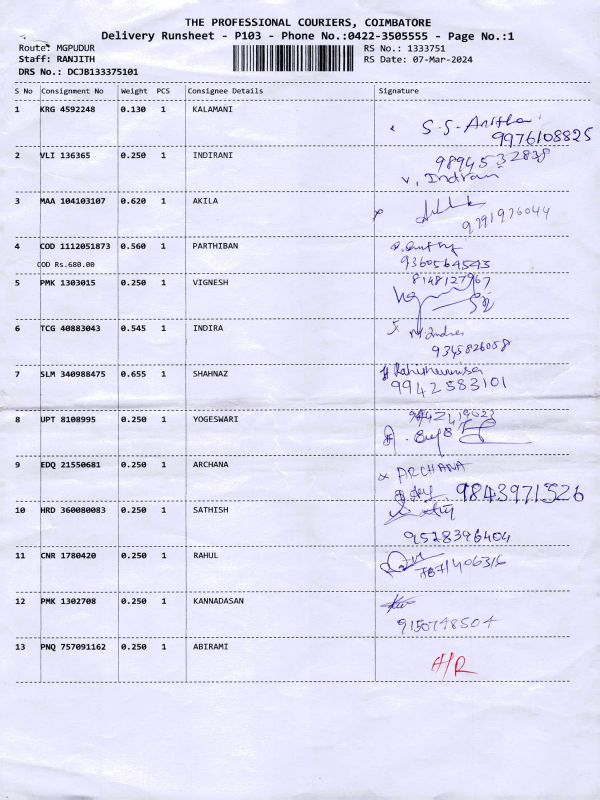 THE PROFESSIONAL COURIERS, COIMBATORE
Delivery Runsheet - P103 - Phone No.:0422-3505555 - Page No.:1
Route: MGPUDUR RS No.: 1333751
Staff: RANJITH RS Date: 07-Mar-2024
DRS No.: DCJB133375101
S No Consignment No Weight PCS Consignee Details Signature
1 KRG 4592248 0.130 1 KALAMANI
9976108825
2 VLI 136365 0.250 1 INDIRANI
v, Indrani
3 MAA 104103107 0.620 1 AKILA
9791926044
4 COD 1112051873 0.560 1 PARTHIBAN
COD Rs.680.00 9360564543
5 PMK 1303015 0.250 1 VIGNESH 8148127967
6 TCG 40883043 0.545 1 INDIRA
9345826058
7 SLM 340988475 0.655 1 SHAHNAZ
9942583101
8 UPT 8108995 0.250 1 YOGESWARI
9 EDQ 21550681 0.250 1 ARCHANA ARCHANA
9843971526
10 HRD 360080083 0.250 1 SATHISH
9528396404
11 CNR 1780420 0.250 1 RAHUL
12 PMK 1302708 0.250 1 KANNADASAN
9150748504
13 PNQ 757091162 0.250 1 ABIRAMI
A/R